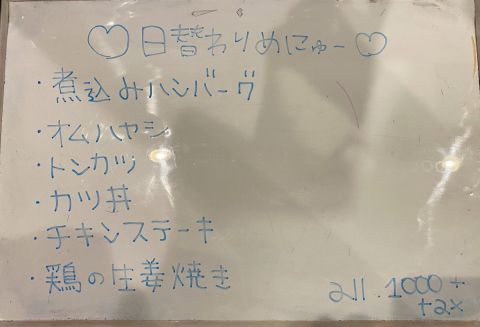 ♡日替わりめにゅー♡
・煮込みハンバーグ
・オムハヤシ
・トンカツ
・カツ丼
・チキンステーキ
・鶏の生姜焼き
all. 1000
+ax